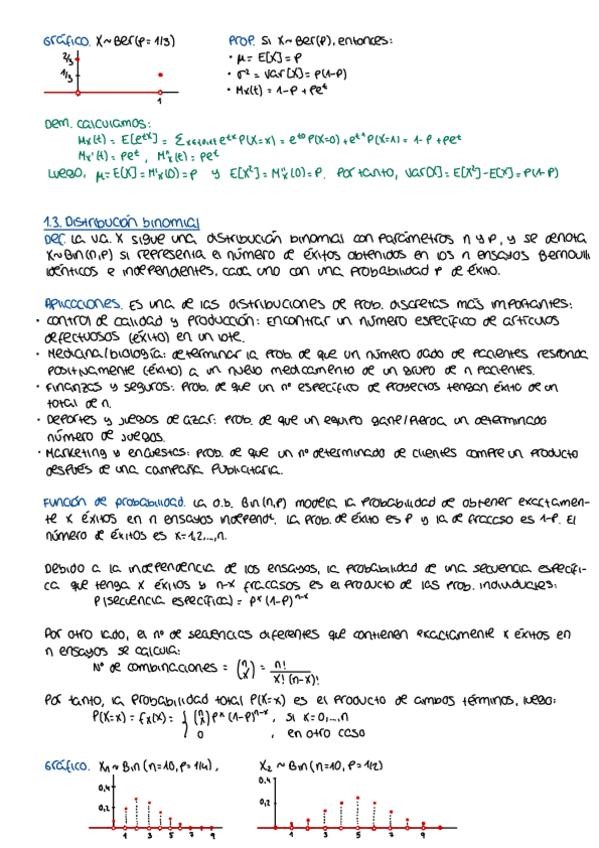 Gráfico. X~Ber(p=1/3)
2/3
1/3
1
Prop. Si X~Ber(p), entonces:
· μ = E[X] = p
· σ² = Var[X] = p(1-p)
· Mx(t) = 1-p+pe^t
Dem. Calculamos:
Mx(t) = E[e^tX] = Σ e^tx P(X=x) = e^t0 P(X=0) + e^t1 P(X=1) = 1-p+pe^t
Mx'(t) = pe^t, M''x(t) = pe^t
Luego, μ = E[X] = M'x(0) = p y E[X²] = M''x(0) = p. Por tanto, Var[X] = E[X²]-E[X]² = p(1-p)
1.3. Distribución binomial
Def. La v.a. X sigue una distribución binomial con parámetros n y p, y se denota
X~Bin(n,p) si representa el número de éxitos obtenidos en los n ensayos Bernoulli
idénticos e independientes, cada uno con una probabilidad p de éxito.
Aplicaciones. Es una de las distribuciones de prob. discretas más importantes:
· Control de calidad y producción: Encontrar un número específico de artículos
defectuosos (éxito) en un lote.
· Medicina/biología: determinar la prob. de que un número dado de pacientes responda
positivamente (éxito) a un nuevo medicamento de un grupo de n pacientes.
· Finanzas y seguros: prob. de que un nº específico de proyectos tengan éxito de un
total de n.
· Deportes y juegos de azar: prob. de que un equipo gane/pierda un determinado
número de juegos.
· Marketing y encuestas: prob. de que un nº determinado de clientes compre un producto
después de una campaña publicitaria.
Función de probabilidad. La d.b. Bin(n,p) modela la probabilidad de obtener exactamen-
te x éxitos en n ensayos independ. La prob. de éxito es p y la de fracaso es 1-p. El
número de éxitos es x=1,2,...,n.
Debido a la independencia de los ensayos, la probabilidad de una secuencia específi-
ca que tenga x éxitos y n-x fracasos es el producto de las prob. individuales:
P(secuencia específica) = p^x (1-p)^n-x
Por otro lado, el nº de secuencias diferentes que contienen exactamente x éxitos en
n ensayos se calcula:
Nº de combinaciones = (n x) = n! / x!(n-x)!
Por tanto, la probabilidad total P(X=x) es el producto de ambos términos, luego:
P(X=x) = fx(x) = { (n x) p^x (1-p)^n-x, si x=0,...,n
0 , en otro caso
Gráfico. X₁~Bin(n=10, p=1/4),
0,4
0,2
1 3 5 7 9
X₂~Bin(n=10, p=1/2)
0,4
0,2
1 3 5 7 9